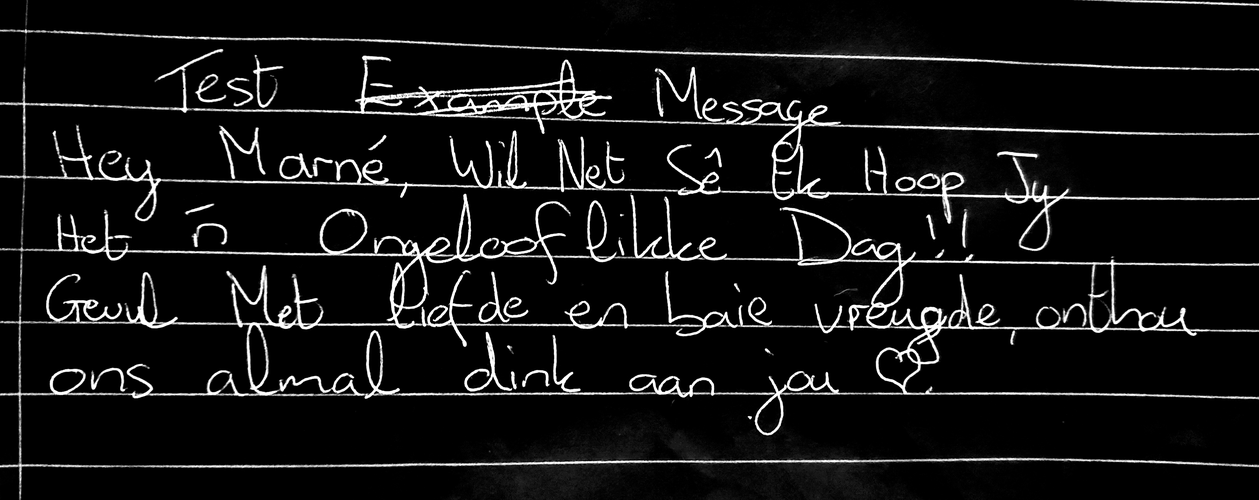 Test Example Message
Hey Marné, Wil Net Sê Ek Hoop Jy
Het ñ Ongelooflikke Dag!!
Gevul Met liefde en baie vreugde, onthou
ons almal dink aan jou ♡.